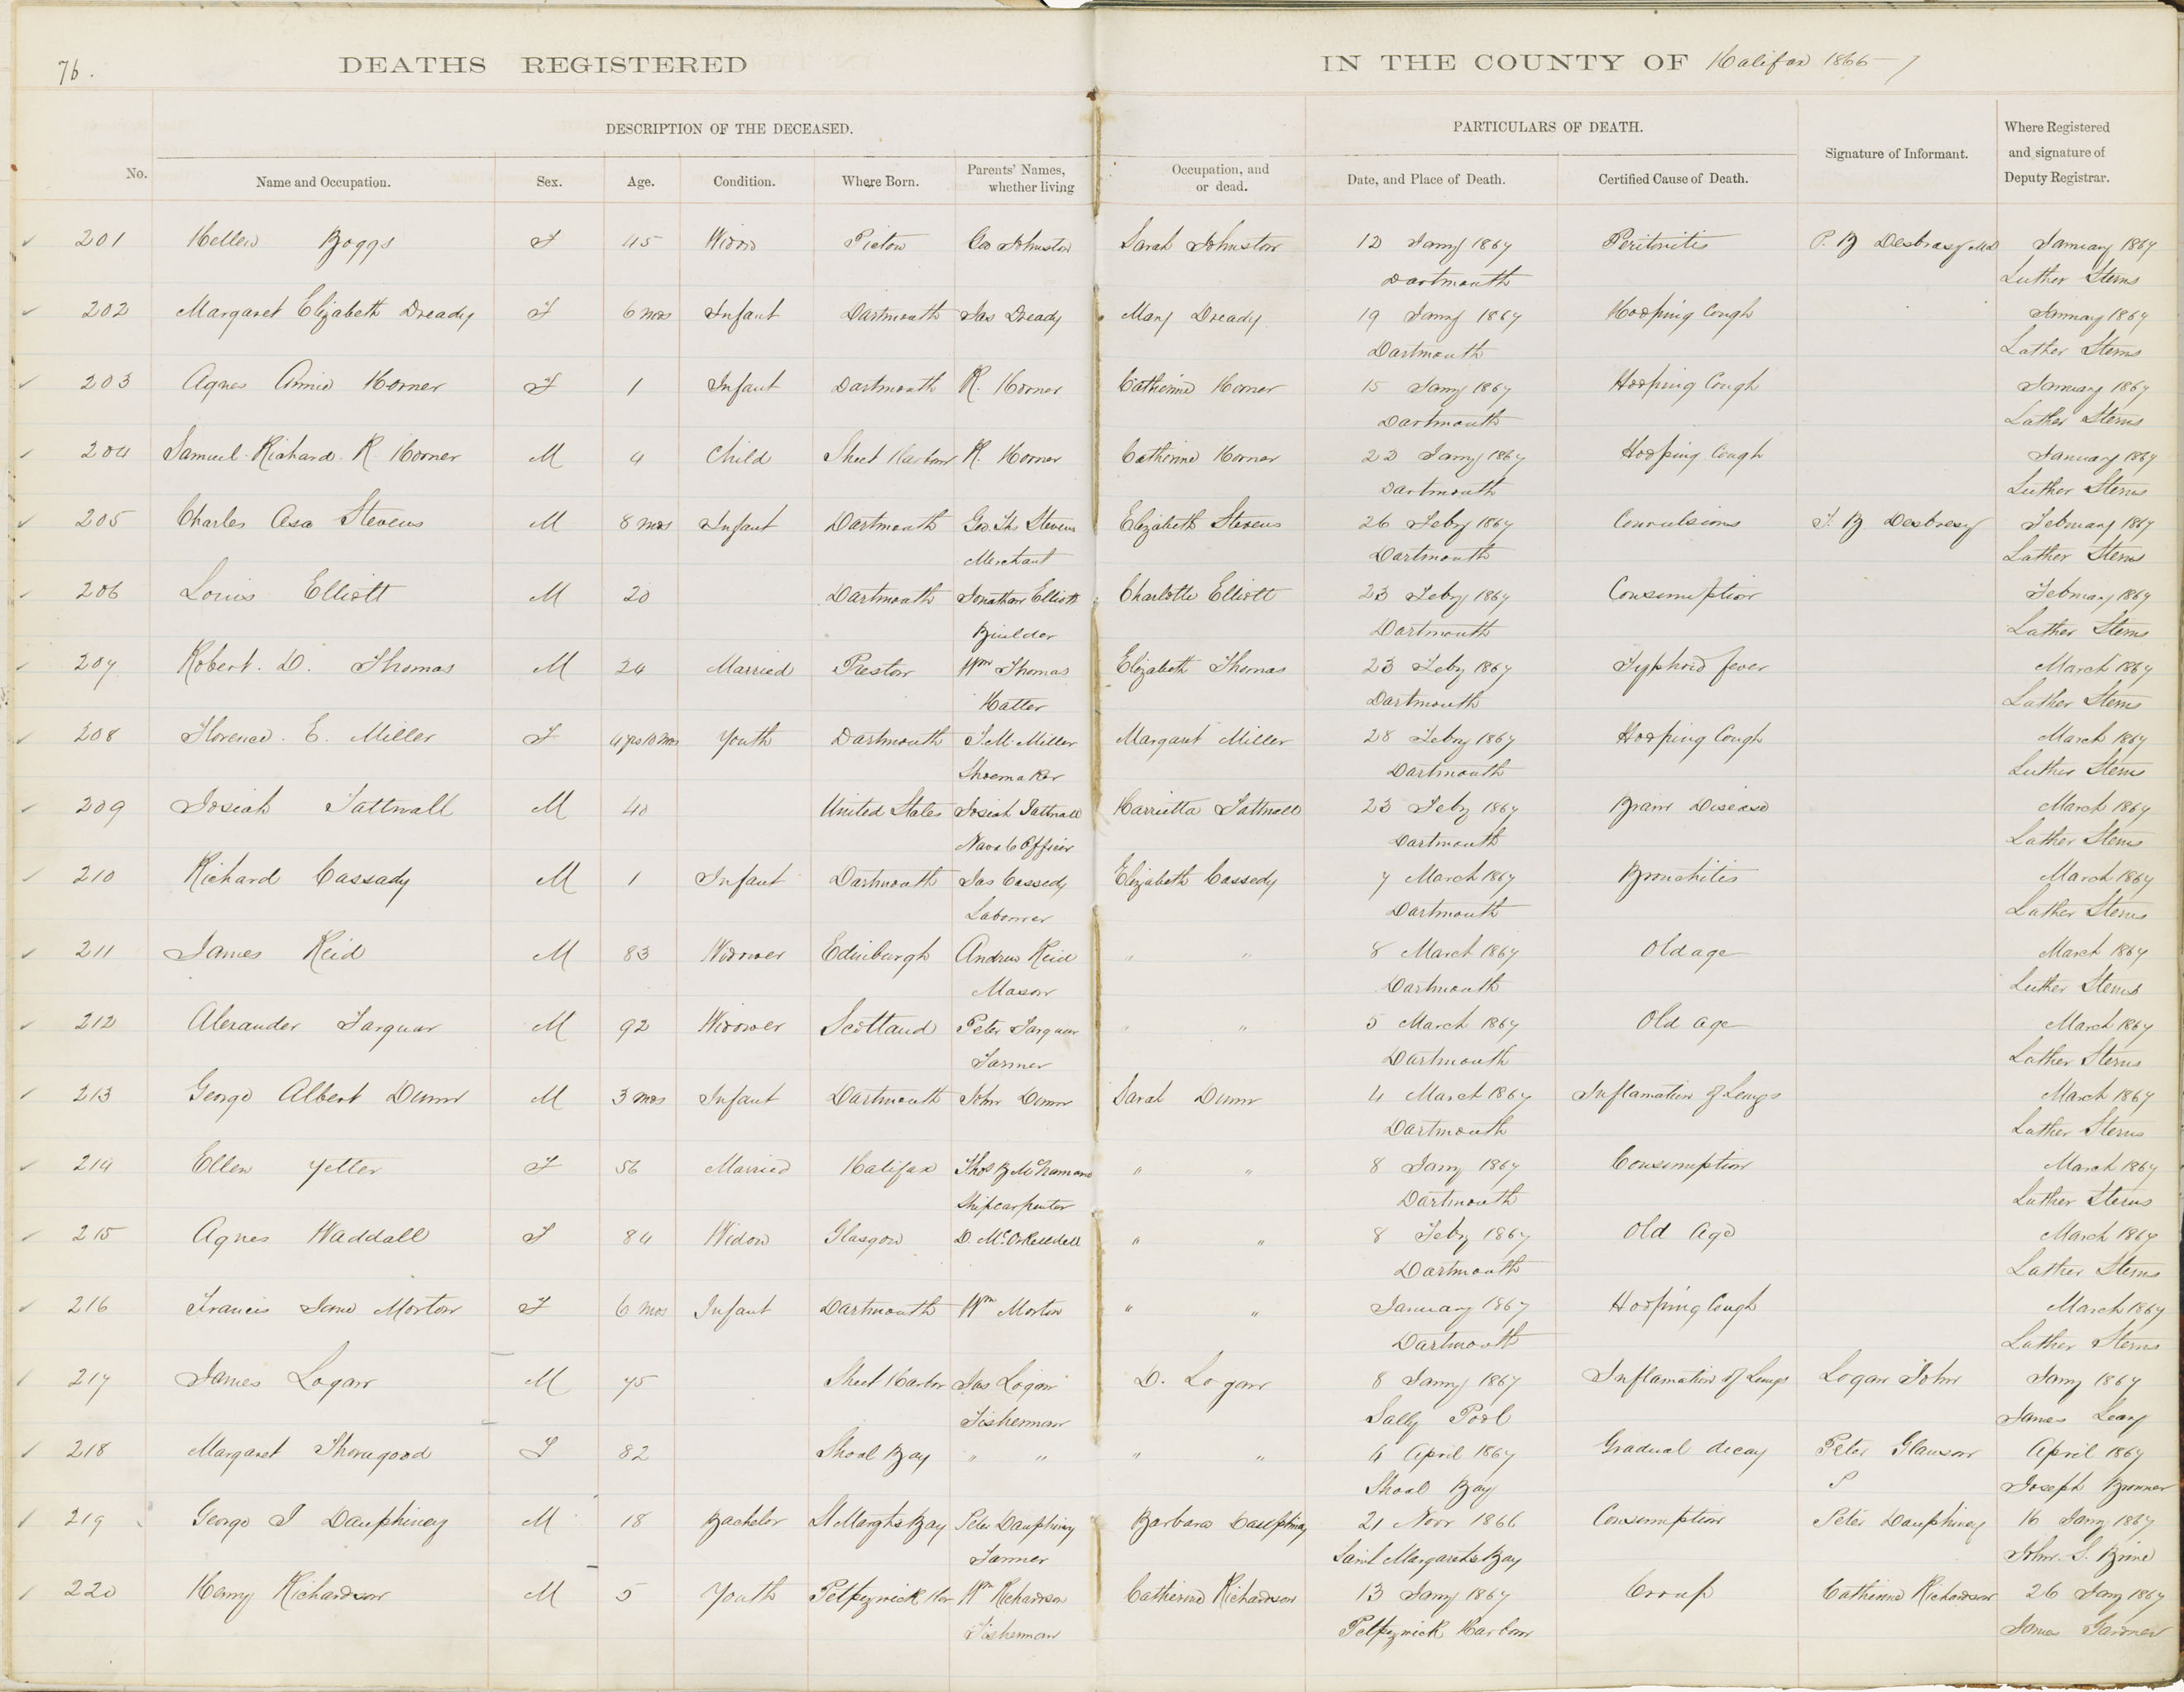 76.
DEATHS REGISTERED IN THE COUNTY OF Halifax 1866-7
DESCRIPTION OF THE DECEASED. PARTICULARS OF DEATH.
No. Name and Occupation. Sex. Age. Condition. Where Born. Parents' Names, whether living Occupation, and or dead. Date, and Place of Death. Certified Cause of Death. Signature of Informant. Where Registered and signature of Deputy Registrar.
201 Hellen Boggs F 45 Widow Pictou Geo Johnston Sarah Johnston 12 Jany 1867 Peritonitis P. B Desbrasy MD January 1867
Dartmouth Luther Sterns
202 Margaret Elizabeth Dready F 6 mos Infant Dartmouth Jas Dready Mary Dready 19 Jany 1867 Hooping Cough January 1867
Dartmouth Luther Sterns
203 Agnes Annie Horner F 1 Infant Dartmouth R. Horner Catherine Horner 15 Jany 1867 Hooping Cough January 1867
Dartmouth Luther Sterns
204 Samuel Richard R Horner M 4 Child Sheet Harbour R. Horner Catherine Horner 22 Jany 1867 Hooping Cough January 1867
Dartmouth Luther Sterns
205 Charles Asa Stevens M 8 mos Infant Dartmouth Geo Ths Stevens Elizabeth Stevens 26 Feby 1867 Convulsions T. B Desbrasy February 1867
Merchant Dartmouth Luther Sterns
206 Louis Elliott M 20 Dartmouth Jonathan Elliott Charlotte Elliott 23 Feby 1867 Consumption February 1867
Builder Dartmouth Luther Sterns
207 Robert. D. Thomas M 24 Married Preston Wm Thomas Elizabeth Thomas 23 Feby 1867 Typhoid fever March 1867
Hatter Dartmouth Luther Sterns
208 Florence. E. Miller F 4 yrs 10 mos Youth Dartmouth J. M Miller Margaret Miller 28 Feby 1867 Hooping Cough March 1867
Shoemaker Dartmouth Luther Sterns
209 Josiah Tattnall M 40 United States Josiah Tattnall Harrietta Tattnall 23 Feby 1867 Brain Disease March 1867
Naval Officer Dartmouth Luther Sterns
210 Richard Cassady M 1 Infant Dartmouth Jas Cassedy Elizabeth Cassedy 7 March 1867 Bronchitis March 1867
Labourer Dartmouth Luther Sterns
211 James Reid M 83 Widower Edinburgh Andrew Reid " " 8 March 1867 Old age March 1867
Mason Dartmouth Luther Sterns
212 Alexander Farquar M 92 Widower Scotland Peter Farquar " " 5 March 1867 Old age March 1867
Farmer Dartmouth Luther Sterns
213 George Albert Dunn M 3 mos Infant Dartmouth John Dunn Sarah Dunn 4 March 1867 Inflamation of Lungs March 1867
Dartmouth Luther Sterns
214 Ellen Yetter F 56 Married Halifax Thos B McNamara " " 8 Jany 1867 Consumption March 1867
Shipcarpenter Dartmouth Luther Sterns
215 Agnes Waddall F 84 Widow Glasgow D. " " 8 Feby 1867 Old Age March 1867
Dartmouth Luther Sterns
216 Francis Jane Morton F 6 mos Infant Dartmouth Wm Morton " " January 1867 Hooping Cough March 1867
Dartmouth Luther Sterns
217 James Logan M 75 Sheet Harbor Jas Logan D. Logan 8 Jany 1867 Inflamation of Lungs Logan John Jany 1867
Fisherman Sally Pool James Leary
218 Margaret Thoragood F 82 Shoal Bay " " " " 4 April 1867 Gradual decay Peter Glawson April 1867
Shoal Bay S Joseph Brunner
219 George I Dauphiney M 18 Bachelor St Margts Bay Peter Dauphiney Barbara Dauphiney 21 Novr 1866 Consumption Peter Dauphiney 16 Jany 1867
Farmer Saint Margarets Bay John. S. Brine
220 Henry Richardson M 5 Youth Petpeswick Har Wm Richardson Catherine Richardson 13 Jany 1867 Croup Catherine Richardson 26 Jany 1867
Fisherman Petpeswick Harbour James Gardner